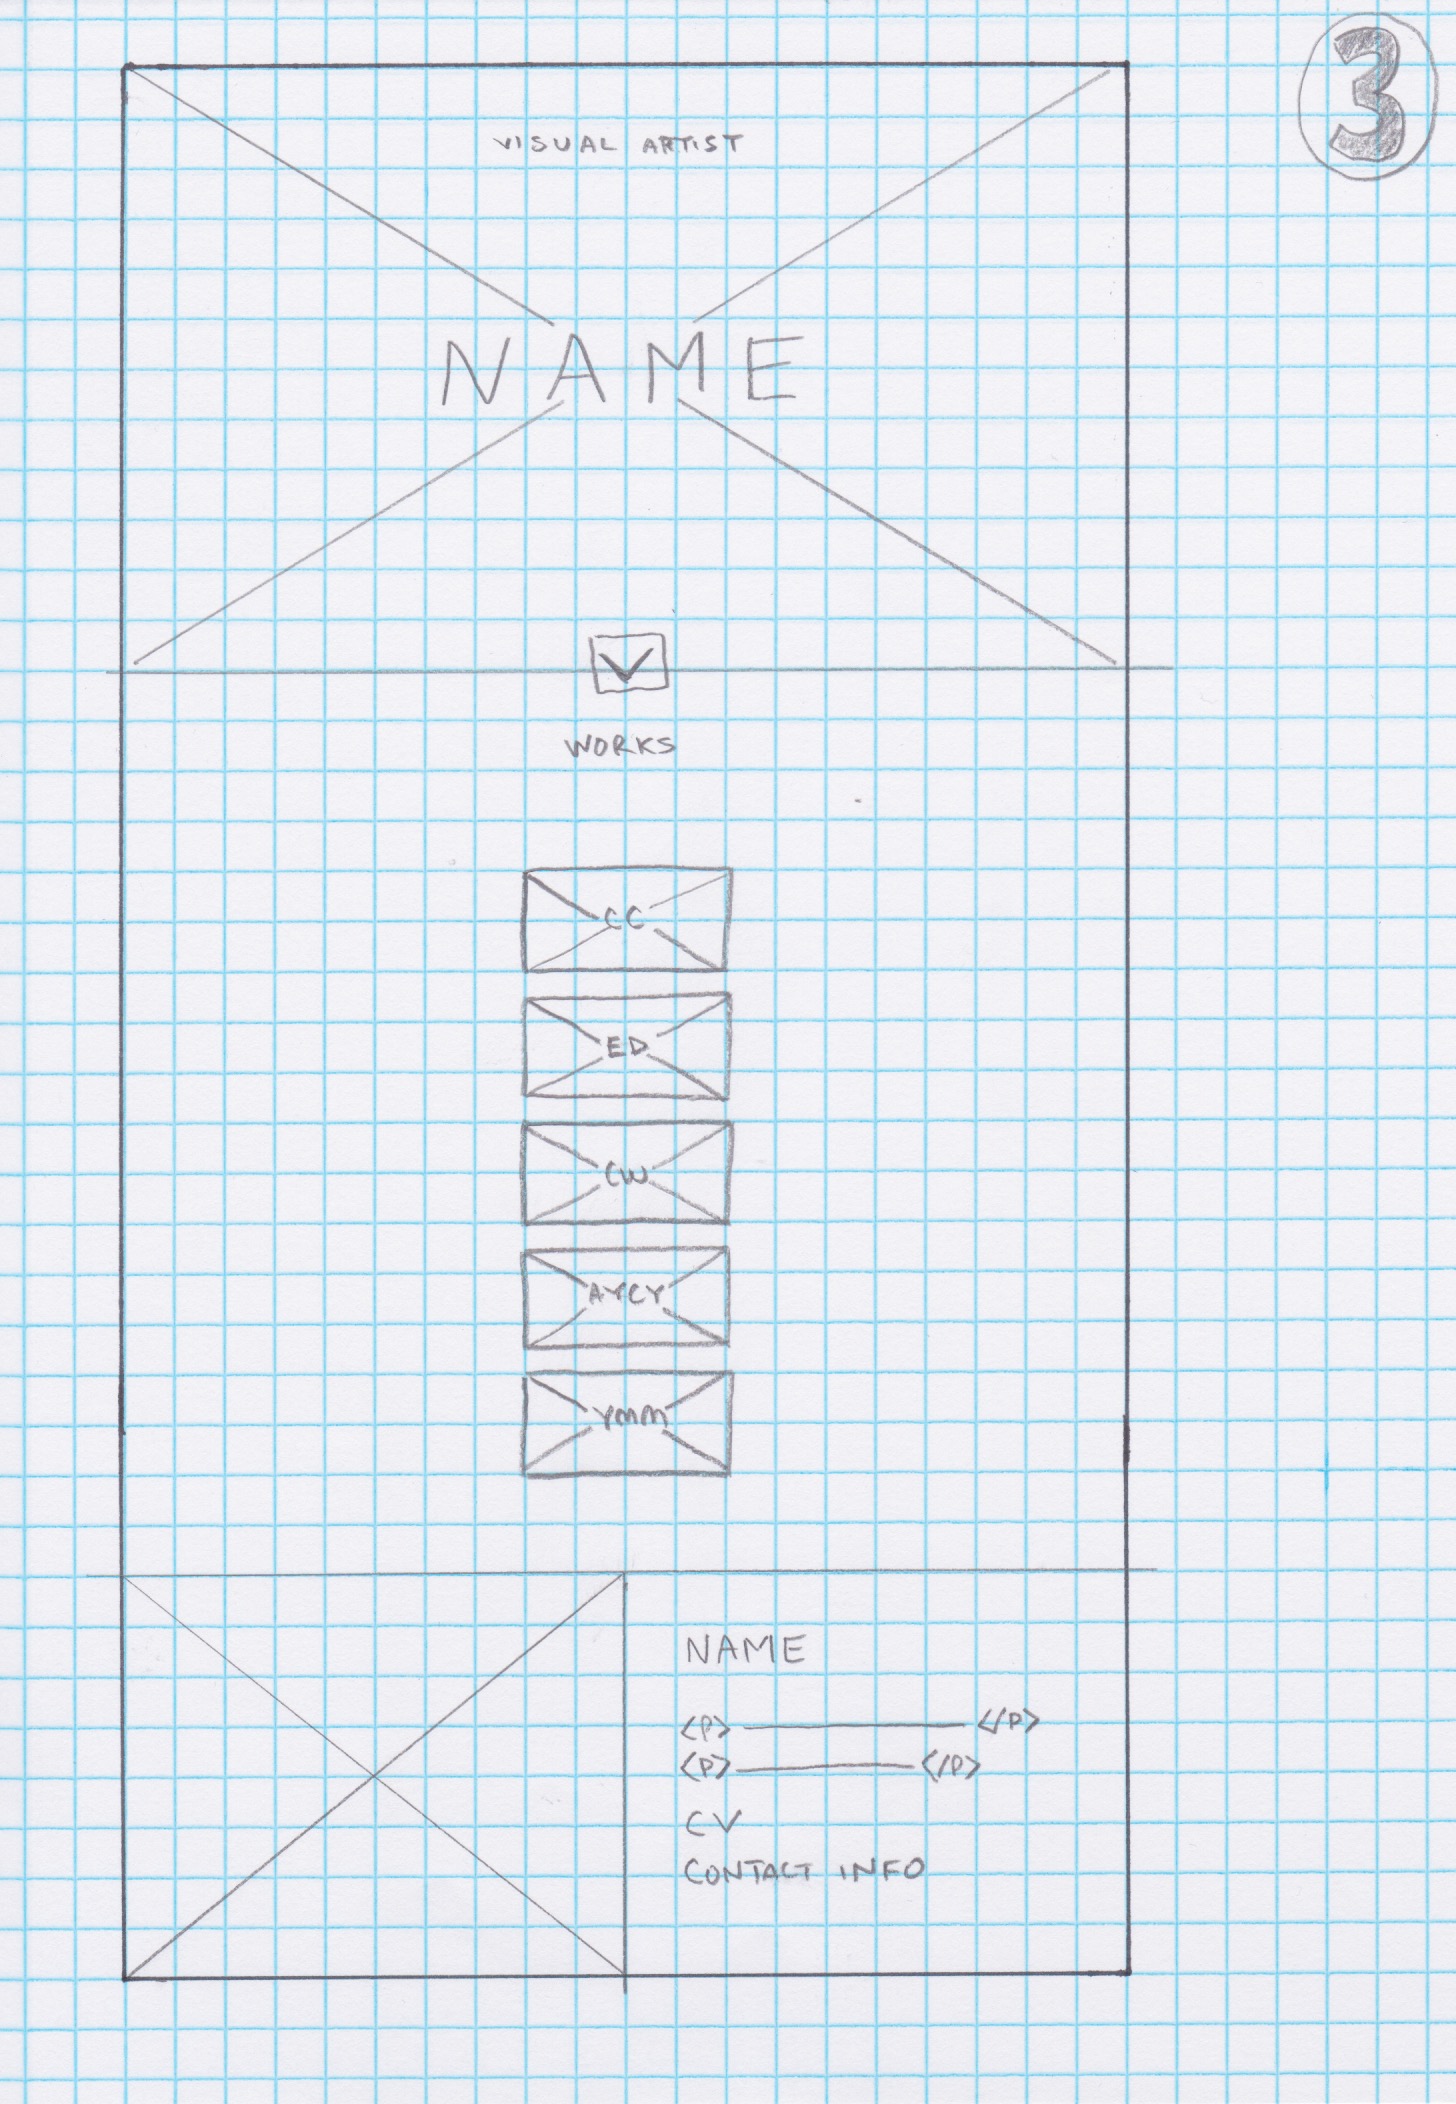 3
VISUAL ARTIST
NAME
WORKS
CC
ED
CW
AYCY
YMM
NAME
<P> </P>
<P> </P>
CV
CONTACT INFO